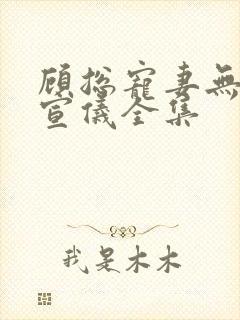 顾总寵妻無
宣儀全集
我是木木